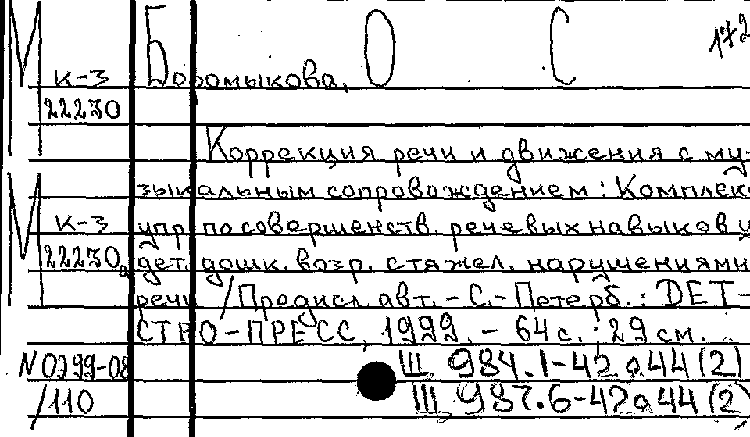 М Б О С 172
К-3 Боромыкова,
22230
Коррекция речи и движения с му-
зыкальным сопровождением: Комплекс
М К-3 упр. по совершенств. речевых навыков у
22230а дет. дошк. возр. с тяжел. нарушениями
речи / Предисл. авт. - С.-Петерб.: ДЕТ-
СТВО-ПРЕСС, 1999. - 64 с.; 29 см.
N 0399-08 Ш 984.1-42 я44(2)
/110 Ш 987.6-42 я44(2)